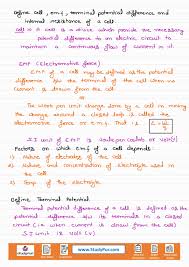 Define cell, emf, terminal potential difference and internal resistance of a cell.
Cell → A cell is a device which provide the necessary potential difference to an electric circuit to maintain a continuous flow of current in it.
EMF (Electromotive force)
EMF of a cell may be defined as the potential difference b/w the terminal of the cell when no current is drawn from the cell.
The work per unit charge done by a cell in moving the charge around a closed loop is called the electromotive force or emf. That is,
S.I unit of EMF is
Factors on which emf of a cell depends
1) Nature of electrodes of the cell
2) Nature and concentration of electrolyte used in the cell
3) Temp. of the electrolyte
Define Terminal Potential
The terminal potential of cell is defined as the potential difference b/w its terminals in a closed circuit
S.I unit is volt (V)
StudyPur
www.StudyPur.com